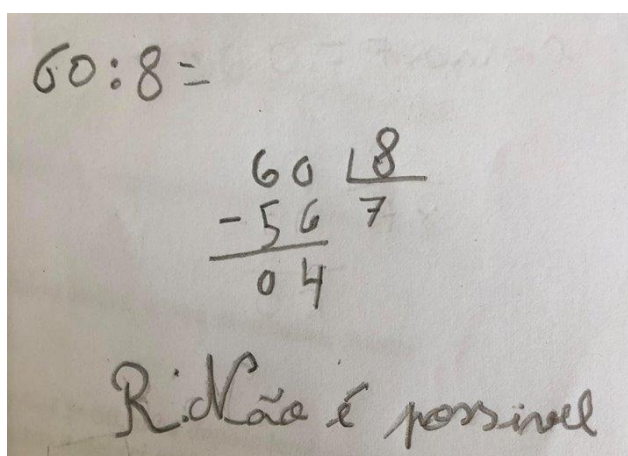 60:8=
60 8
-56 7
04
R: Não é possivel